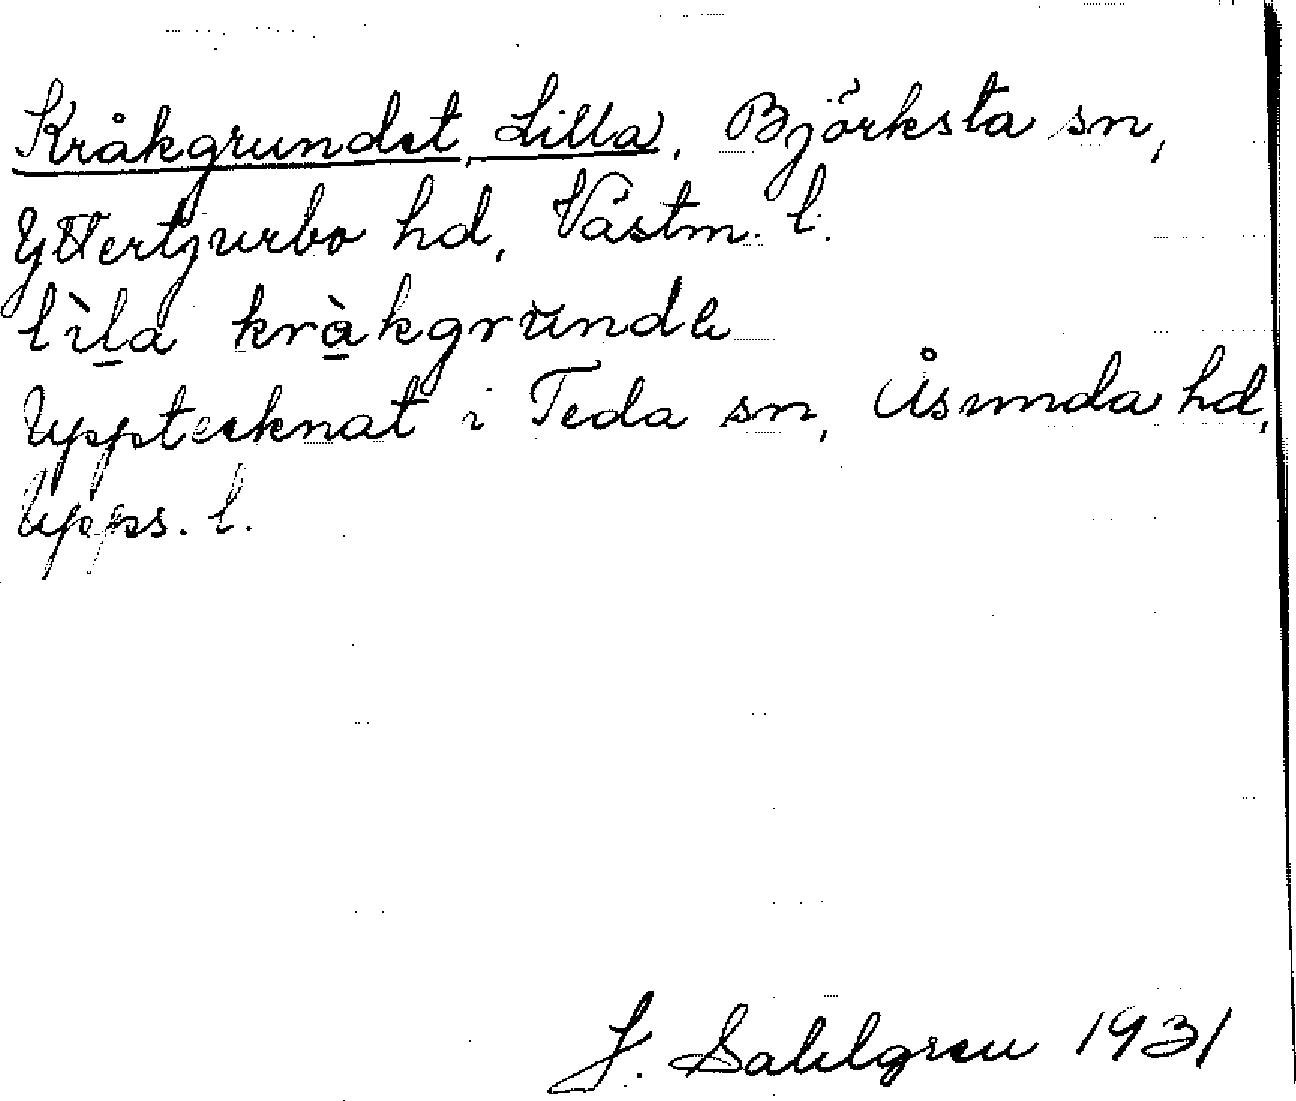 Kråkgrundet, Lilla, Björksta sn,
Yttertjurbo hd, Västm. l.
lìla kràkgrundə
Upptecknat i Teda sn, Åsunda hd,
Upps. l.
J. Sahlgren 1931